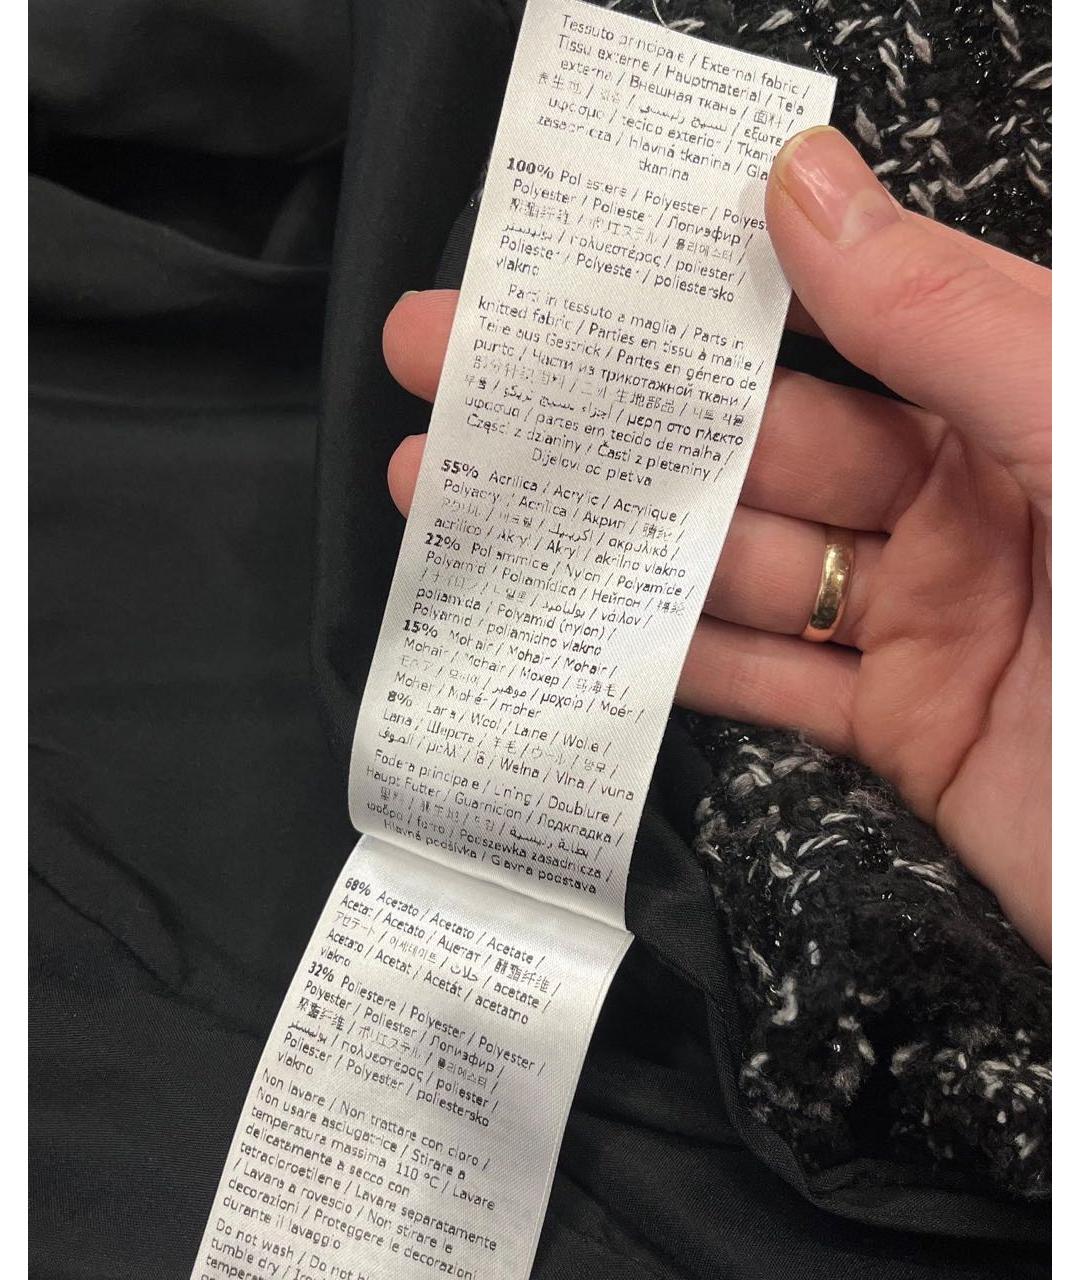 Tessuto principale / External fabric /
Tissu externe / Hauptmaterial / Tela
externa / Внешняя ткань / 面料 /
表生地 / 겉감 / نسيج رئيسي / εξωτε
ύφασμα / tecido exterior / Tkani
zasadnicza / hlavná tkanina / Gla
tkanina
100% Poliestere / Polyester / Polyes
Polyester / Poliester / Полиэфир /
聚酯纤维 / ポリエステル / 폴리에스터 /
بوليستر / πολυεστέρας / poliester /
Poliester / Polyester / poliestersko
vlakno
Parti in tessuto a maglia / Parts in
knitted fabric / Parties en tissu à maille /
Teile aus Gestrick / Partes en género de
punto / Части из трикотажной ткани /
部分针织面料 / ニット生地部品 / 니트 직물
부품 / أجزاء نسيج تريكو / μέρη στο πλεκτό
ύφασμα / partes em tecido de malha /
Części z dzianiny / Časti z pleteniny /
Dijelovi od pletiva
55% Acrilica / Acrylic / Acrylique /
Polyacryl / Acrílica / Акрил / 腈纶 /
アクリル / 아크릴 / اكريليك / ακρυλικό /
acrílico / Akryl / Akryl / akrilno vlakno
22% Poliammide / Nylon / Polyamide /
Polyamid / Poliamídica / Нейлон / 锦纶
/ ナイロン / 나일론 / بولياميد / νάιλον /
poliamida / Polyamid (nylon) /
Polyamid / poliamidno vlakno
15% Mohair / Mohair / Mohair /
Mohair / Mohair / Мохер / 马海毛 /
モヘア / 모헤어 / موهير / μοχαίρ / Moér /
Moher / Mohér / moher
8% Lana / Wool / Laine / Wolle /
Lana / Шерсть / 羊毛 / ウール / 양모 /
الصوف / μαλλί / lã / Wełna / Vlna / vuna
Fodera principale / Lining / Doublure /
Haupt Futter / Guarnicion / Подкладка /
里料 / 裏生地 / 안감 / بطانة رئيسية /
φόδρα / forro / Podszewka zasadnicza /
Hlavná podšívka / Glavna podstava
68% Acetato / Acetato / Acetate /
Acetat / Acetato / Ацетат / 醋酯纤维 /
アセテート / 아세테이트 / خلات / acetate /
Acetato / Acetat / Acetát / acetatno
vlakno
32% Poliestere / Polyester / Polyester /
Polyester / Poliester / Полиэфир /
聚酯纤维 / ポリエステル / 폴리에스터 /
بوليستر / πολυεστέρας / poliester /
Poliester / Polyester / poliestersko
vlakno
Non lavare / Non trattare con cloro /
Non usare asciugatrice / Stirare a
temperatura massima 110 °C / Lavare
delicatamente a secco con
tetracloroetilene / Lavare separatamente
/ Lavare a rovescio / Non stirare le
decorazioni / Proteggere le decorazioni
durante il lavaggio
Do not wash / Do not bl
tumble dry / Iron
temperat